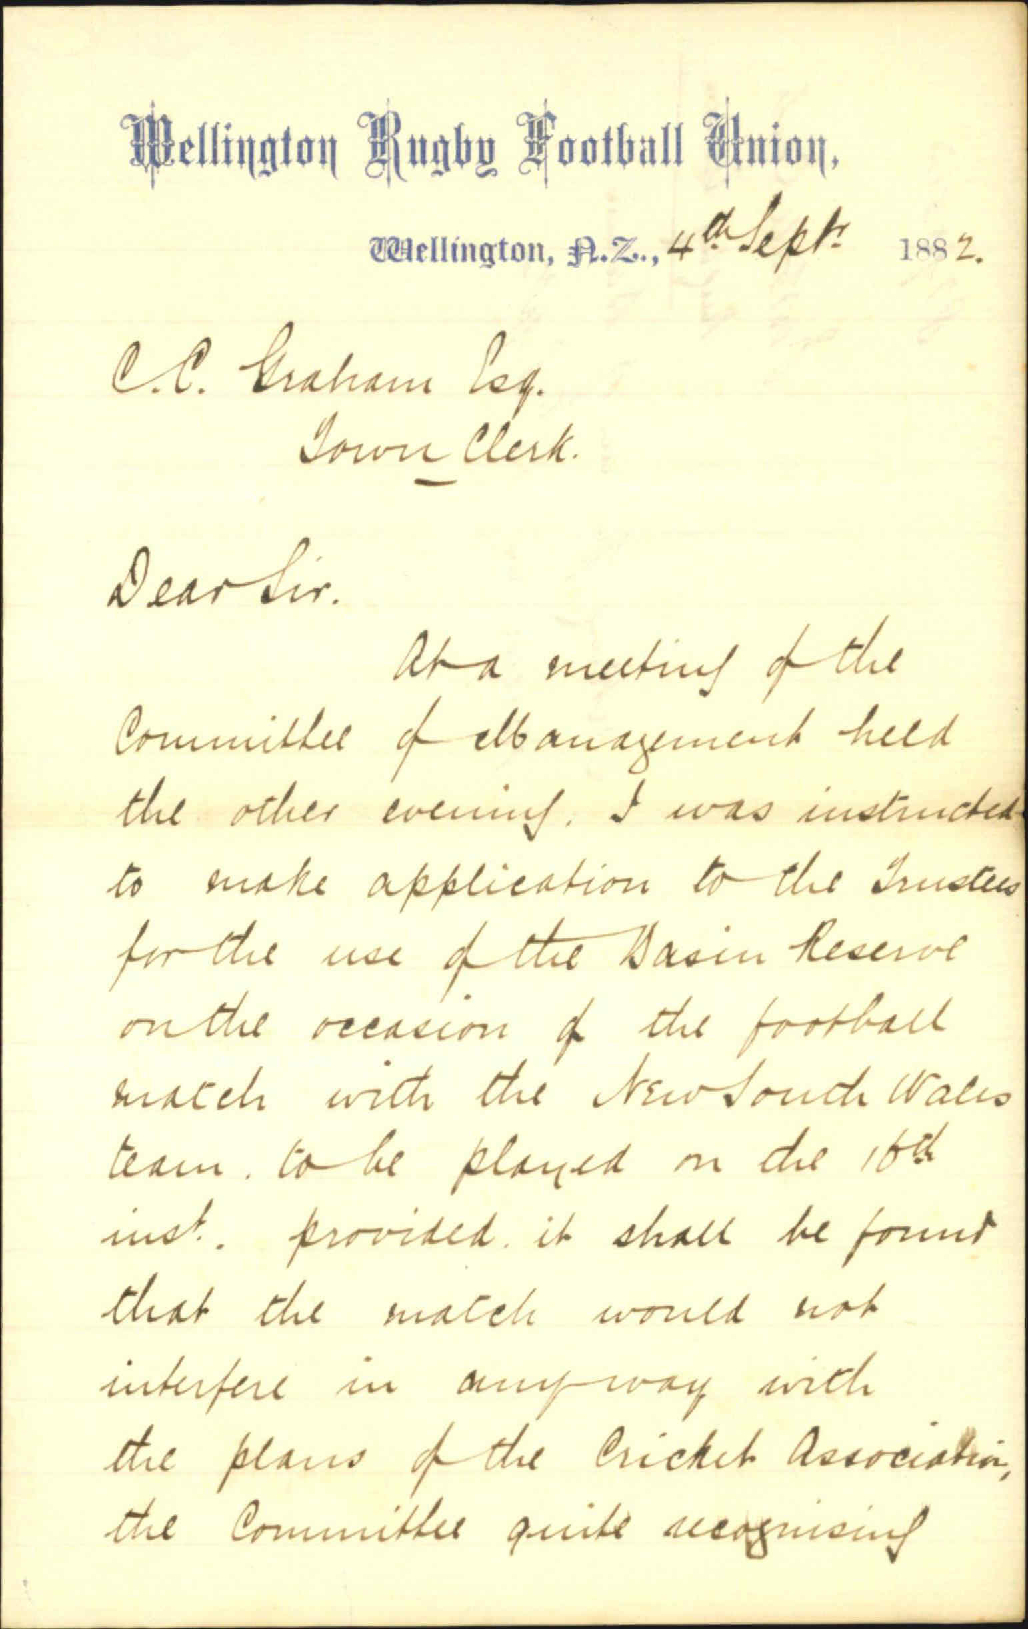 Wellington Rugby Football Union,
Wellington, N.Z., 4th Septr 1882.
C.C. Graham Esq.
Town Clerk.
Dear Sir.
At a meeting of the
Committee of Management held
the other evening. I was instructed
to make application to the Trustees
for the use of the Basin Reserve
on the occasion of the football
match with the New South Wales
team. to be played on the 16th
inst. provided. it shall be found
that the match would not
interfere in any way with
the plans of the Cricket Association,
the Committee quite recognising